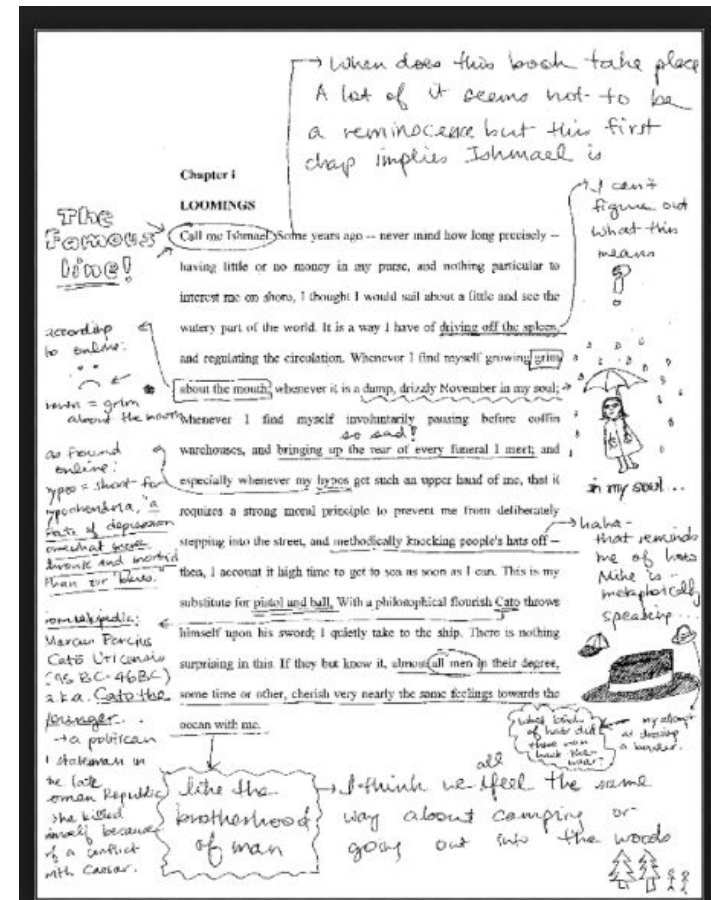 When does this book take place
A lot of it seems not to be
a reminocence but this first
chap implies Ishmael is
Chapter i
LOOMINGS
The
Famous
line!
I can't
figure out
what this
means
?
Call me Ishmael. Some years ago -- never mind how long precisely --
having little or no money in my purse, and nothing particular to
interest me on shore, I thought I would sail about a little and see the
watery part of the world. It is a way I have of driving off the spleen,
and regulating the circulation. Whenever I find myself growing grim
about the mouth; whenever it is a damp, drizzly November in my soul;
whenever I find myself involuntarily pausing before coffin
so sad!
warehouses, and bringing up the rear of every funeral I meet; and
especially whenever my hypos get such an upper hand of me, that it
requires a strong moral principle to prevent me from deliberately
stepping into the street, and methodically knocking people's hats off --
then, I account it high time to get to sea as soon as I can. This is my
substitute for pistol and ball. With a philosophical flourish Cato throws
himself upon his sword; I quietly take to the ship. There is nothing
surprising in this. If they but know it, almost all men in their degree,
some time or other, cherish very nearly the same feelings towards the
ocean with me.
according
to online:
= grim
about the mouth
as found
online:
= short for
"a
of depression
than
Marcus Porcius
Cato
(95 BC-46BC)
a.k.a. Cato the
younger...
→ a politican
statesman in
the late
Republic
he killed
himself because
of a conflict
with Caesar.
in my soul...
haha-
that reminds
me of hats
Mike is -
metaphorically
speaking...
what kind
of hats did
these men
back then
wear?
my attempt
at drawing
a border...
like the
brotherhood
of man
I think we all feel the same
way about camping or
going out into the woods